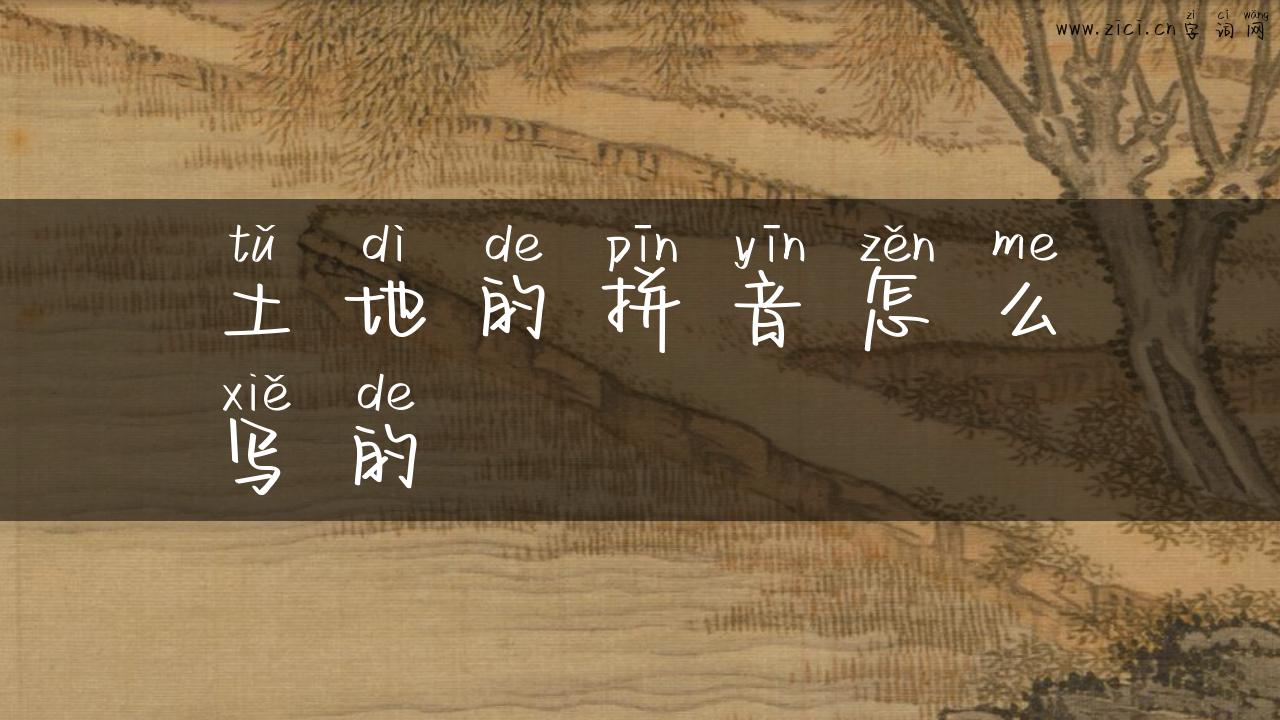 zì cí wǎng
www.zici.cn字词网
tǔ dì de pīn yīn zěn me
土地的拼音怎么
xiě de
写的